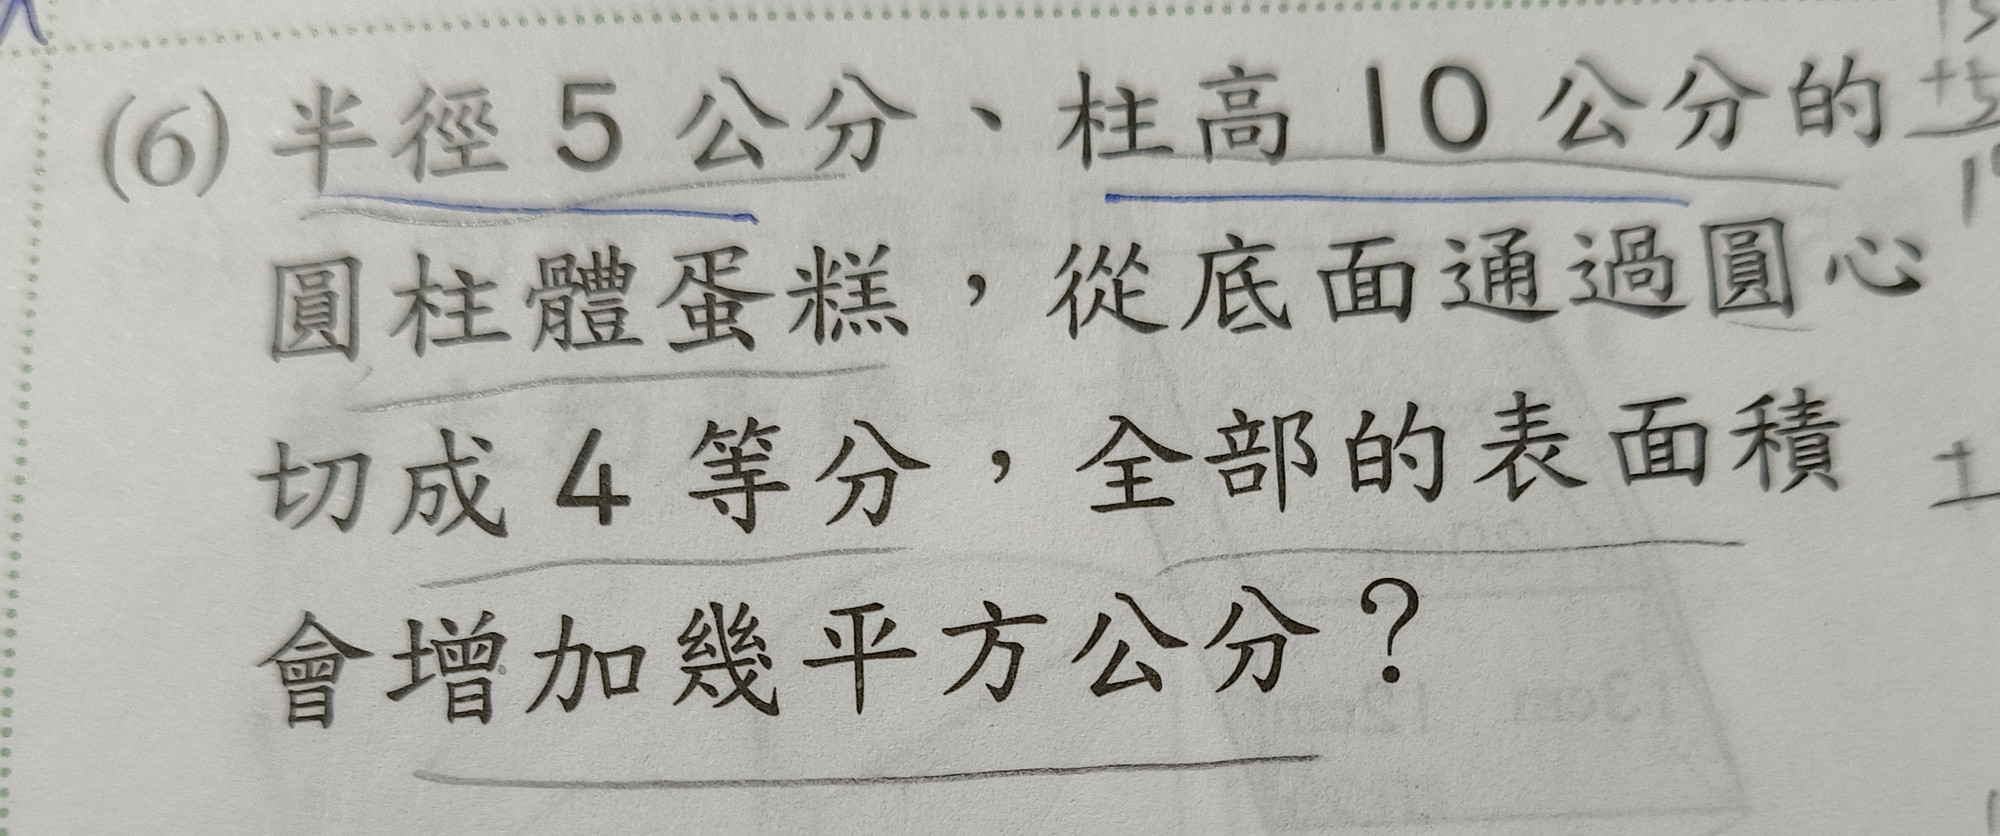 (6) 半徑 5 公分、柱高 10 公分的
圓柱體蛋糕，從底面通過圓心
切成 4 等分，全部的表面積
會增加幾平方公分？